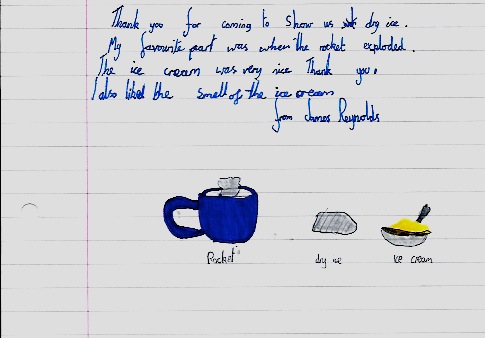 Thank you for coming to show us dry ice.
My favourite part was when the rocket exploded.
The ice cream was very nice Thank you.
I also liked the smell of the ice cream
from James Reynolds
Rocket dry ice Ice cream